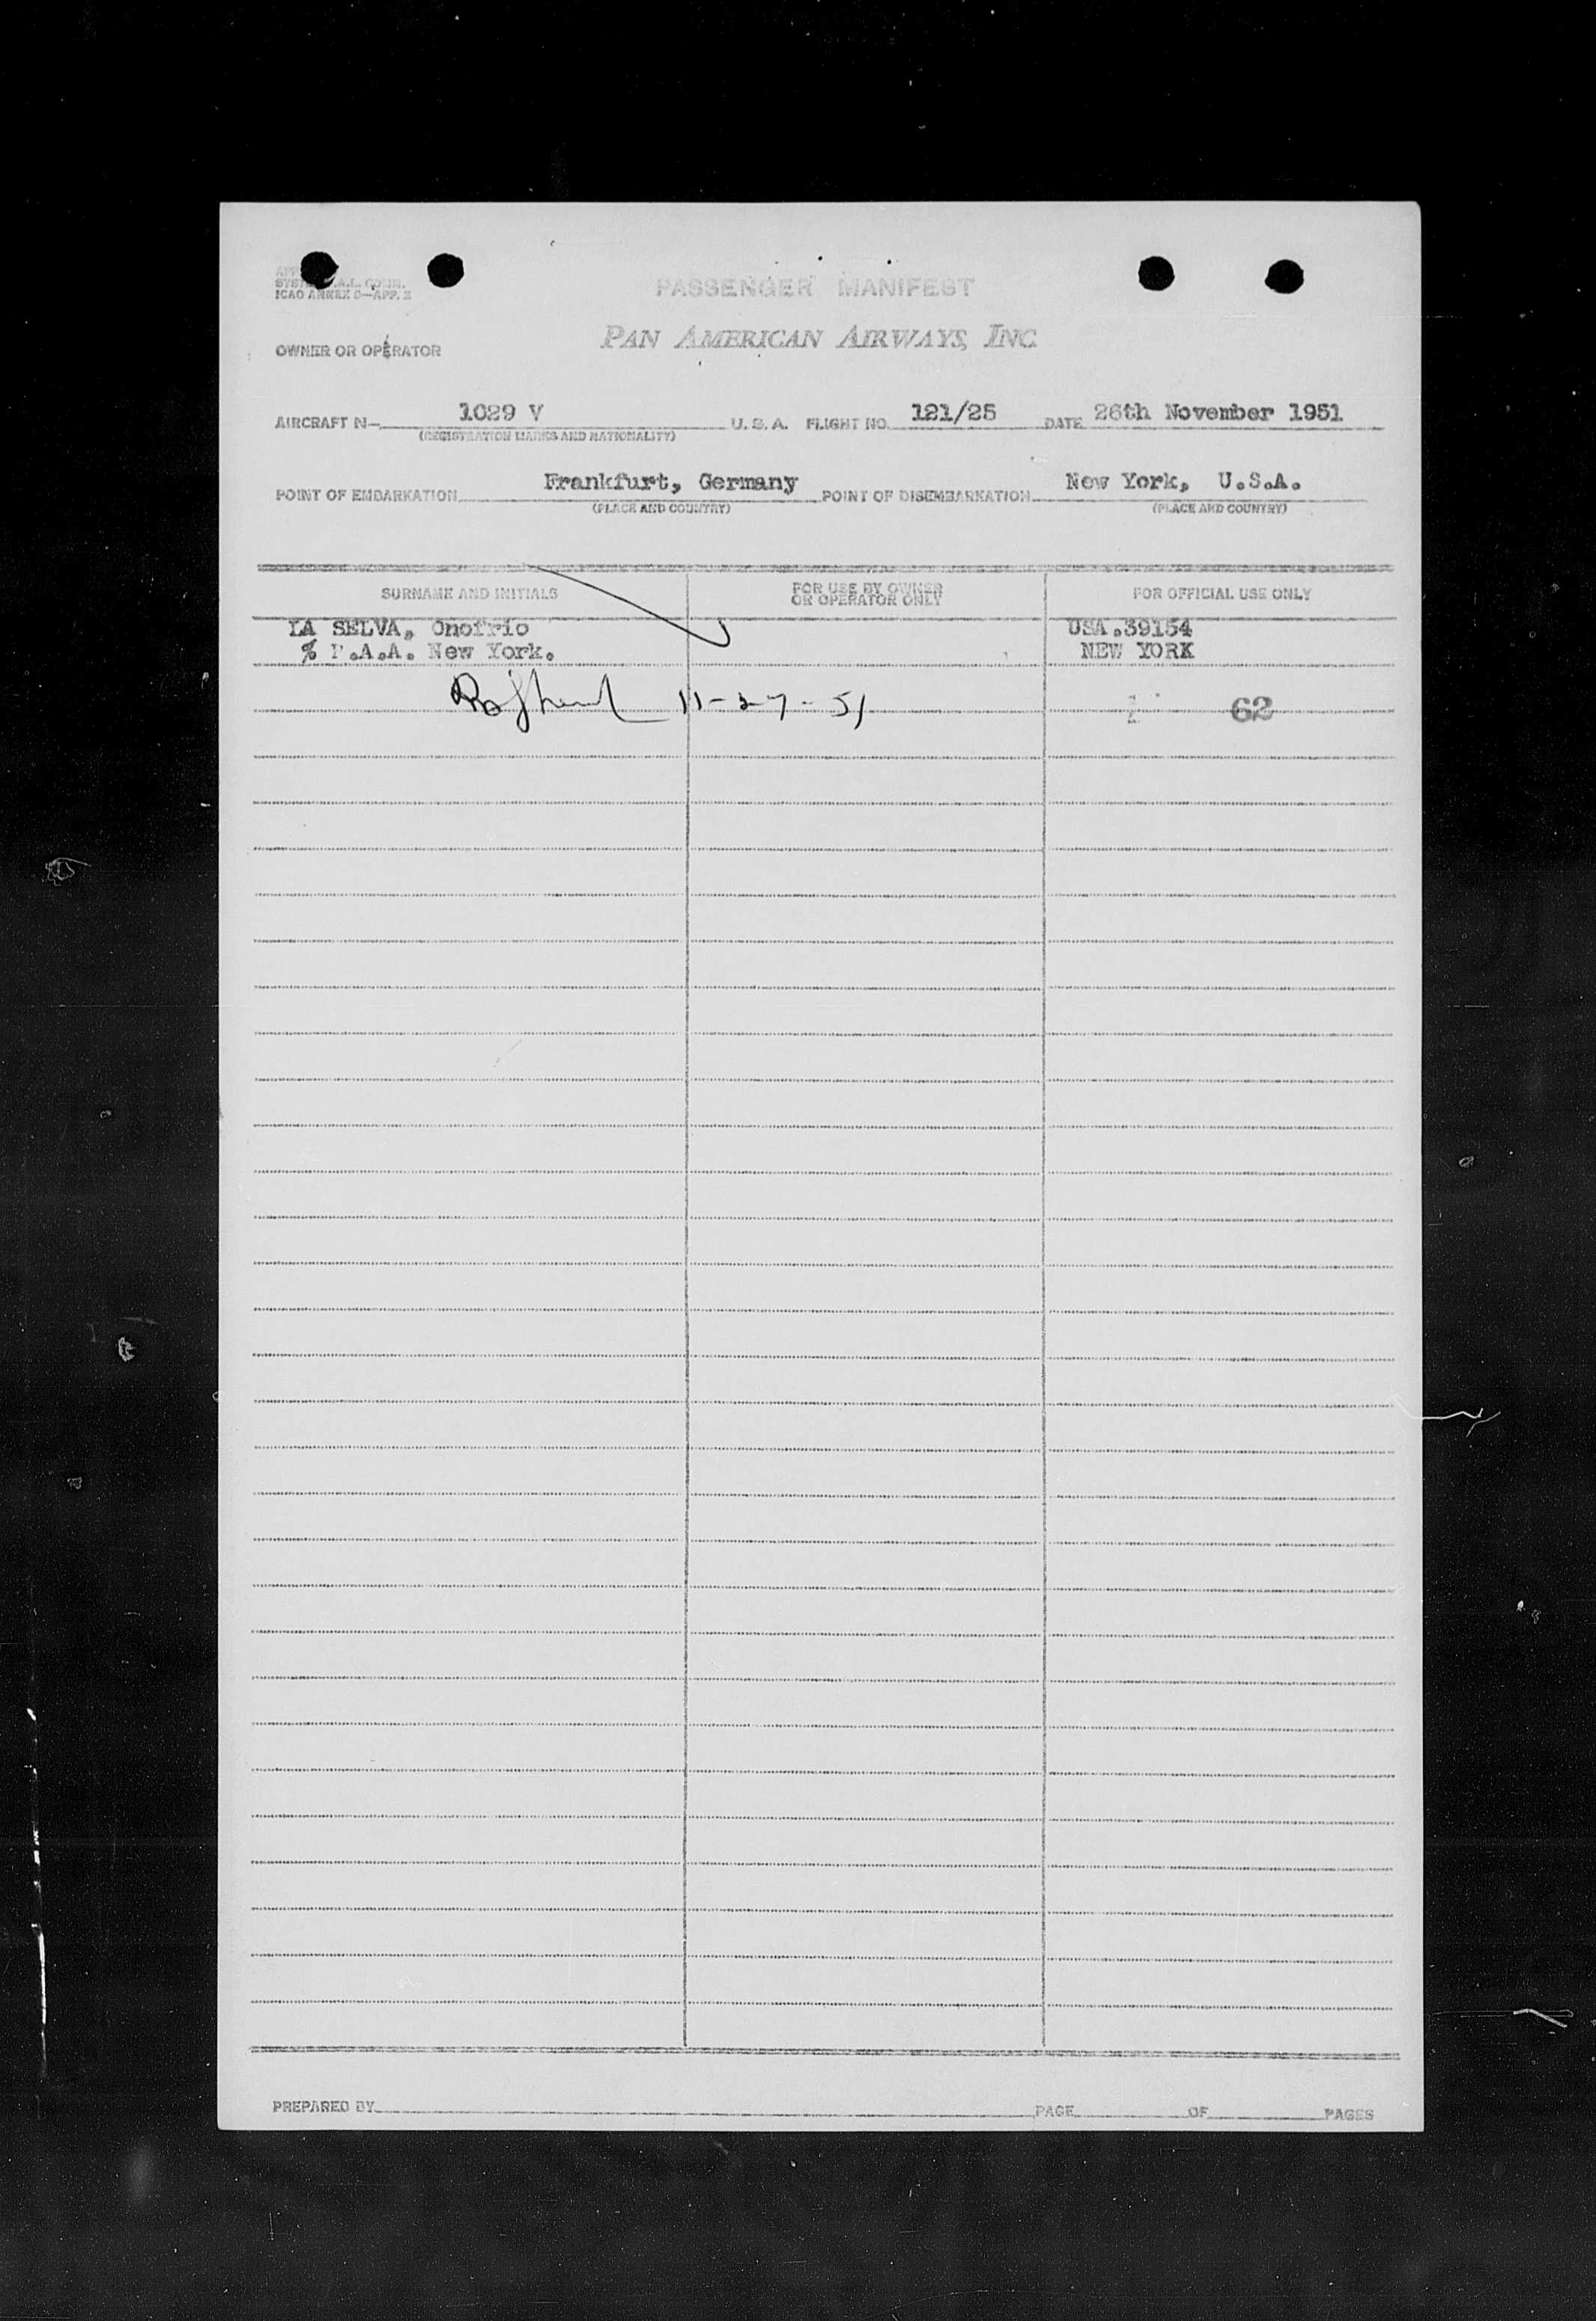 SYST A.L. COMM.
ICAO ANNEX 9—APP. 2
PASSENGER MANIFEST
PAN AMERICAN AIRWAYS, INC.
OWNER OR OPERATOR
AIRCRAFT N— 1029 V U. S. A. FLIGHT NO. 121/25 DATE 26th November 1951
(REGISTRATION MARKS AND NATIONALITY)
POINT OF EMBARKATION Frankfurt, Germany POINT OF DISEMBARKATION New York, U.S.A.
(PLACE AND COUNTRY) (PLACE AND COUNTRY)
SURNAME AND INITIALS FOR USE BY OWNER OR OPERATOR ONLY FOR OFFICIAL USE ONLY
LA SELVA, Onofrio USA.39154
% P.A.A. New York. NEW YORK
11-27-51 62
PREPARED BY PAGE OF PAGES